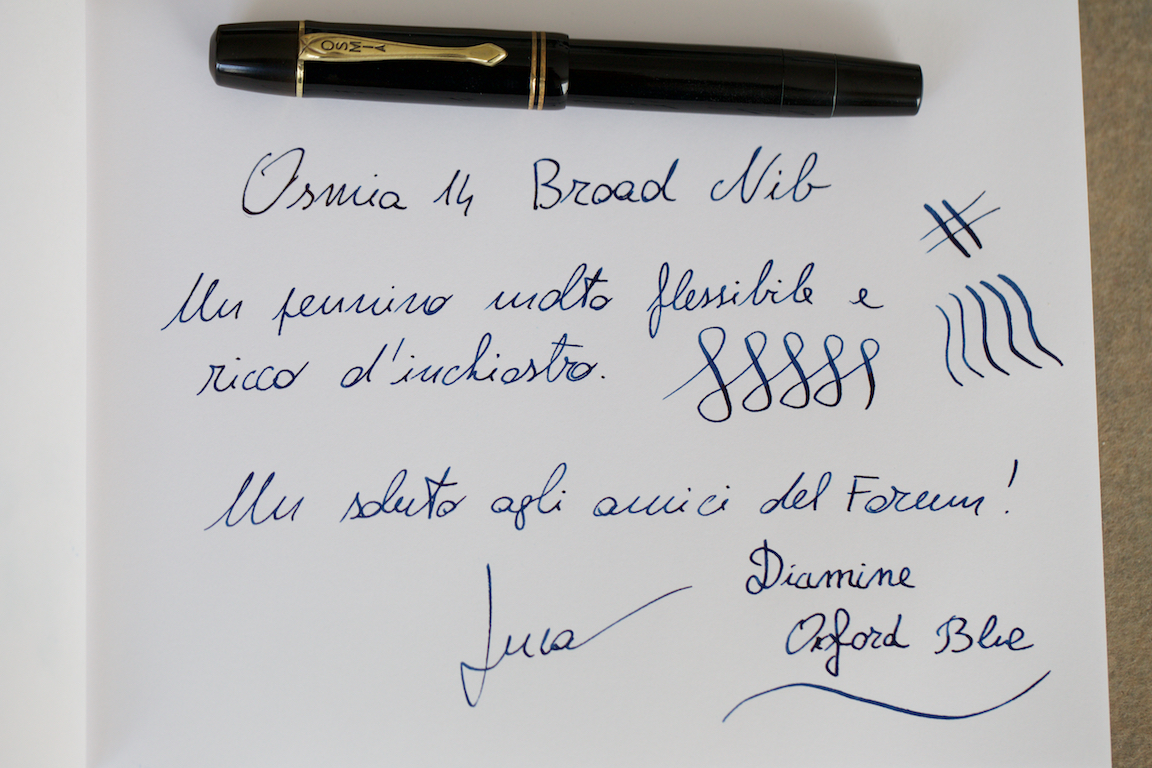 OSMIA
Osmia 14 Broad Nib
Un pennino molto flessibile e
ricco d'inchiostro.
Un saluto agli amici del Forum!
Luca
Diamine
Oxford Blue